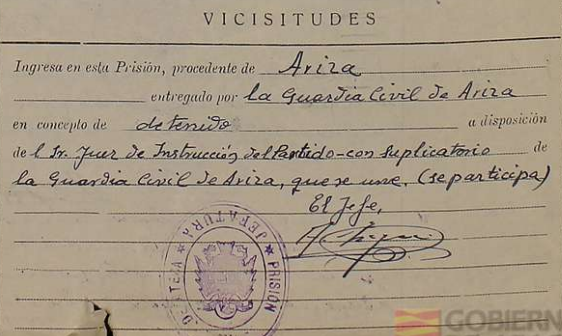 VICISITUDES
Ingresa en esta Prisión, procedente de Ariza
entregado por la Guardia Civil de Ariza
en concepto de detenido a disposición
de l Sr. Juez de Instrucción del Partido-con suplicatorio de
la Guardia Civil de Ariza, que se une, (se participa)
El Jefe,
JEFATURA
PRISIÓN
GOBIERN